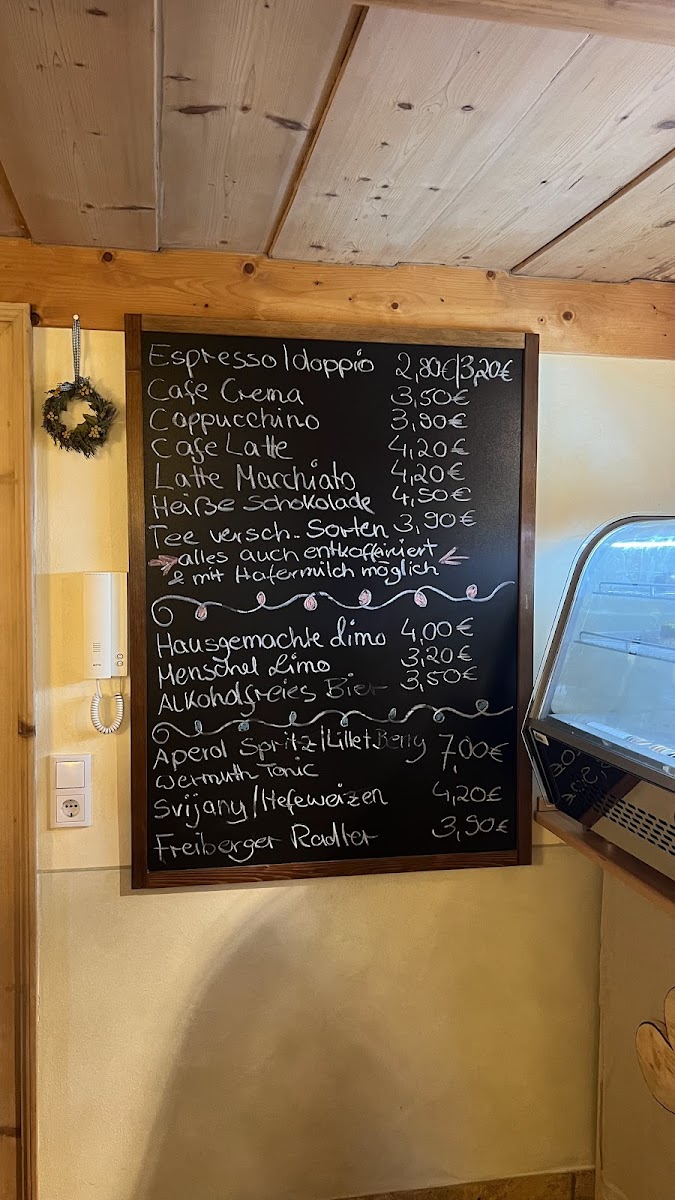 Espresso/doppio 2,80€/3,20€
Cafe Crema 3,50€
Cappucchino 3,80€
Cafe Latte 4,20€
Latte Macchiato 4,20€
Heiße Schokolade 4,50€
Tee versch. Sorten 3,90€
alles auch entkoffeiniert
& mit Hafermilch möglich
Hausgemachte Limo 4,00€
Menschel Limo 3,20€
Alkoholfreies Bier 3,50€
Aperol Spritz/Lillet Berry 7,00€
Wermuth Tonic
Svijany/Hefeweizen 4,20€
Freiberger Radler 3,90€